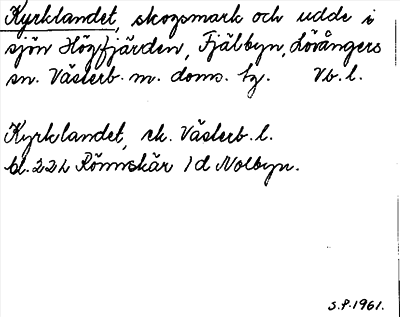 Kyrklandet, skogsmark och udde i
sjön Högfjärden, Fjälbyn, Lövångers
sn. Västerb. m. doms. hg. Vb. l.
Kyrklandet, ek. Västerb. l.
bl. 222 Rönnskär 1d Nolbyn.
S.P. 1961.